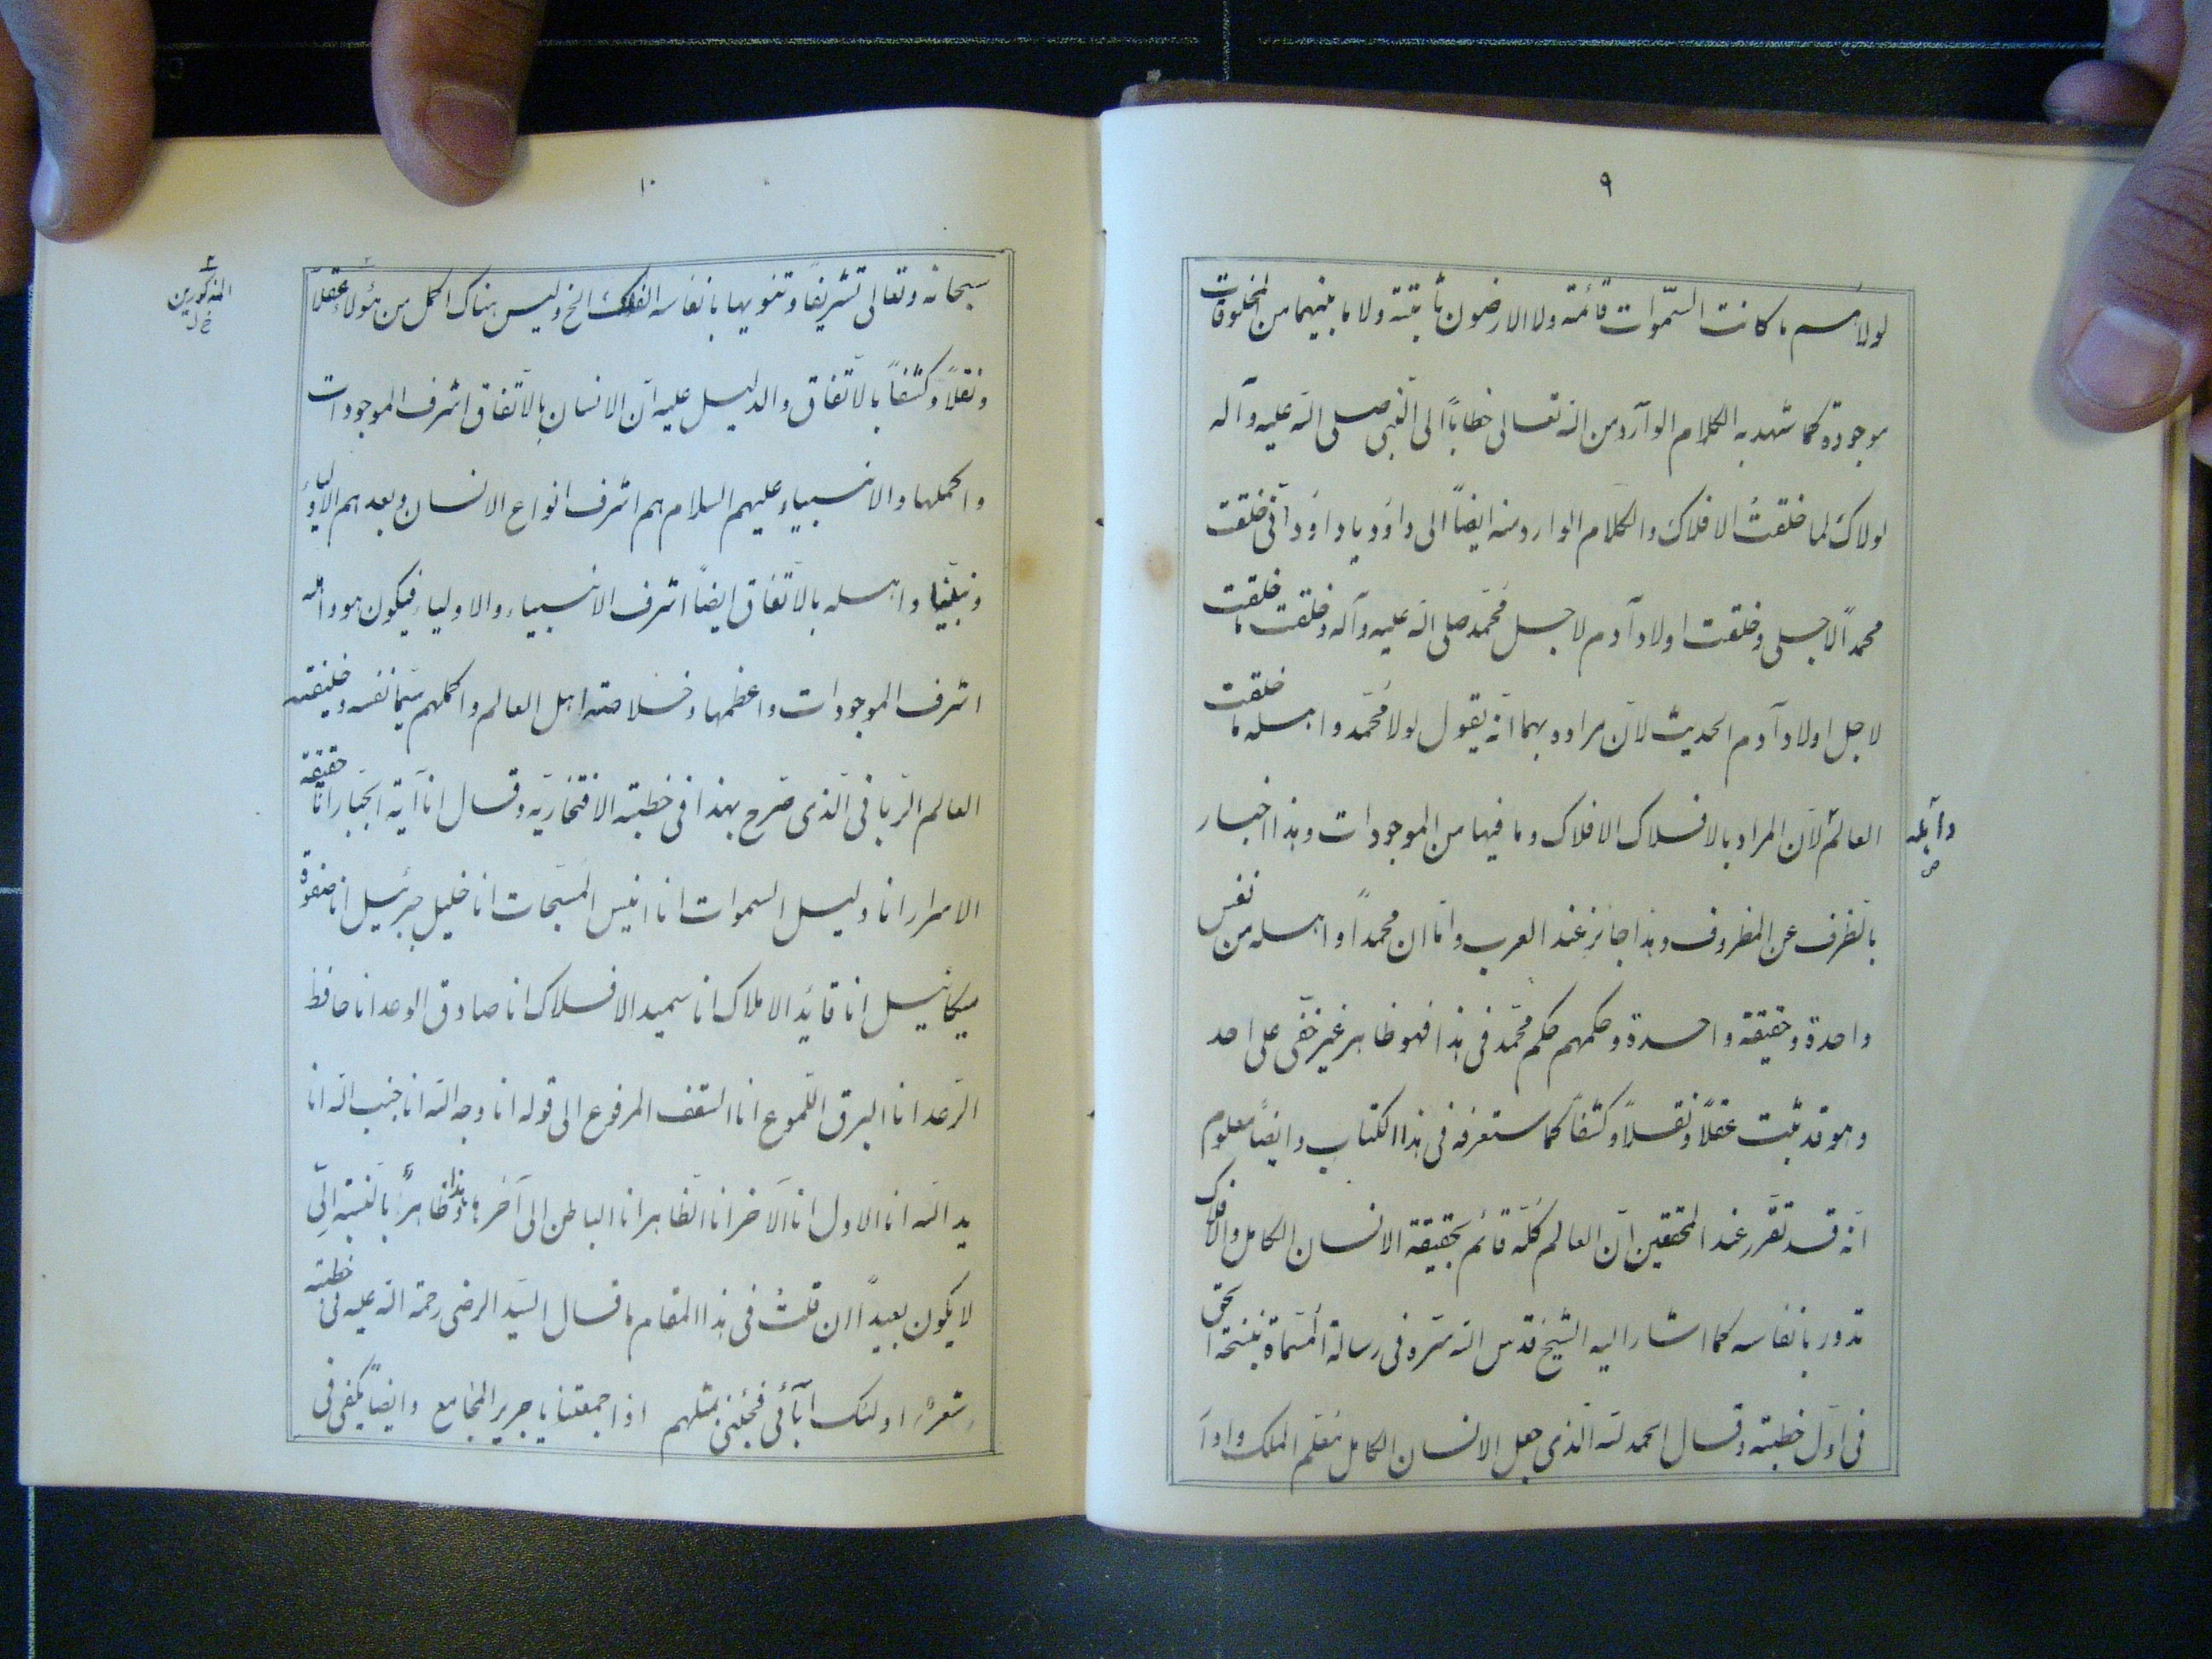 ٩
لولاهم ما كانت السّموات قائمة ولا الارضون ثابتة ولا ما بينهما من المخلوقات
موجودة كما شهد به الكلام الوآرد من الله تعالى خطاباً الى النّبى صلى الله عليه وآله
لولاك لما خلقتُ الافلاك والكلام الوارد منه ايضاً الى داوُد يا داوُد انّى خلقت
محمداً لاجلى وخلقت اولاد آدم لاجل محمّد صلى الله عليه وآله وخلقت ما خلقت
لاجل اولاد آدم الحديث لانّ مراده بهما انّه يقول لولا محمّد واهله ما خلقت
العالم لانّ المراد بالافلاك الافلاك وما فيها من الموجودات وهذا اخبار
وأهله
ص
بالظّرف عن المظروف وهذا جائز عند العرب وامّا ان محمداً واهله من نفس
واحدة وحقيقة واحدة وحكمهم حكم محمّد فى هذا فهو ظاهر غير خفى على احد
وهو قد ثبت عقلاً ونقلاً وكشفاً كما ستعرفه فى هذا الكتاب وايضاً معلوم
انّه قد تقرّر عند المحققين انّ العالم كلّه قائم بحقيقة الانسان الكامل والافلاك
تدور بانفاسه كما اشار اليه الشيخ قدس الله سّره فى رسالة المسّماة بنسخة الحق
فى اوّل خطبته وقال الحمد لله الّذى جعل الانسان الكامل مُعلّم الملك وادآ
١٠
سبحانه وتعالى تشريفاً وتنويها بانفاسه الفلك الخ وليس هناك اكمل من هؤلاء عقلاً
المذكورين
خ ل
ونقلاً وكشفاً بالاتّفاق والدليل عليه انّ الانسان بالاتّفاق اشرف الموجودات
واكملها والانبياء عليهم السلام هم اشرف انواع الانسان وبعدهم الاولياء
ونبيّنا واهله بالاتّفاق ايضاً اشرف الانبياء والاولياء فيكون هو واهله
اشرف الموجودات واعظمها وخلاصة اهل العالم واكملهم سيّما نفسه وخليفته
العالم الرّبانى الّذى صّرح بهذا فى خطبته الافتخاريّه وقال انا آية الجّبار انا حقيقة
الاسرار انا دليل السموات انا انيس المسّبحات انا خليل جبرئيل انا صفوة
ميكائيل انا قائد الاملاك انا سميد الافلاك انا صادق الوعد انا حافظ
الرّعد انا البرق اللّموع انا السّقف المرفوع الى قوله انا وجه الله انا جنب الله انا
يد الله انا الاول انا الآخر انا الظّاهر انا الباطن الى آخره وهذا ظاهر بالنّسبة الىّ
لا يكون بعيداً ان قلتُ فى هذا المقام ما قال السّيد الرضى رحمة الله عليه فى خطبته
شعر اولئك آبآئى فجئنى بمثلهم اذا جمعتنا يا جرير المجامع وايضاً يكفى فى